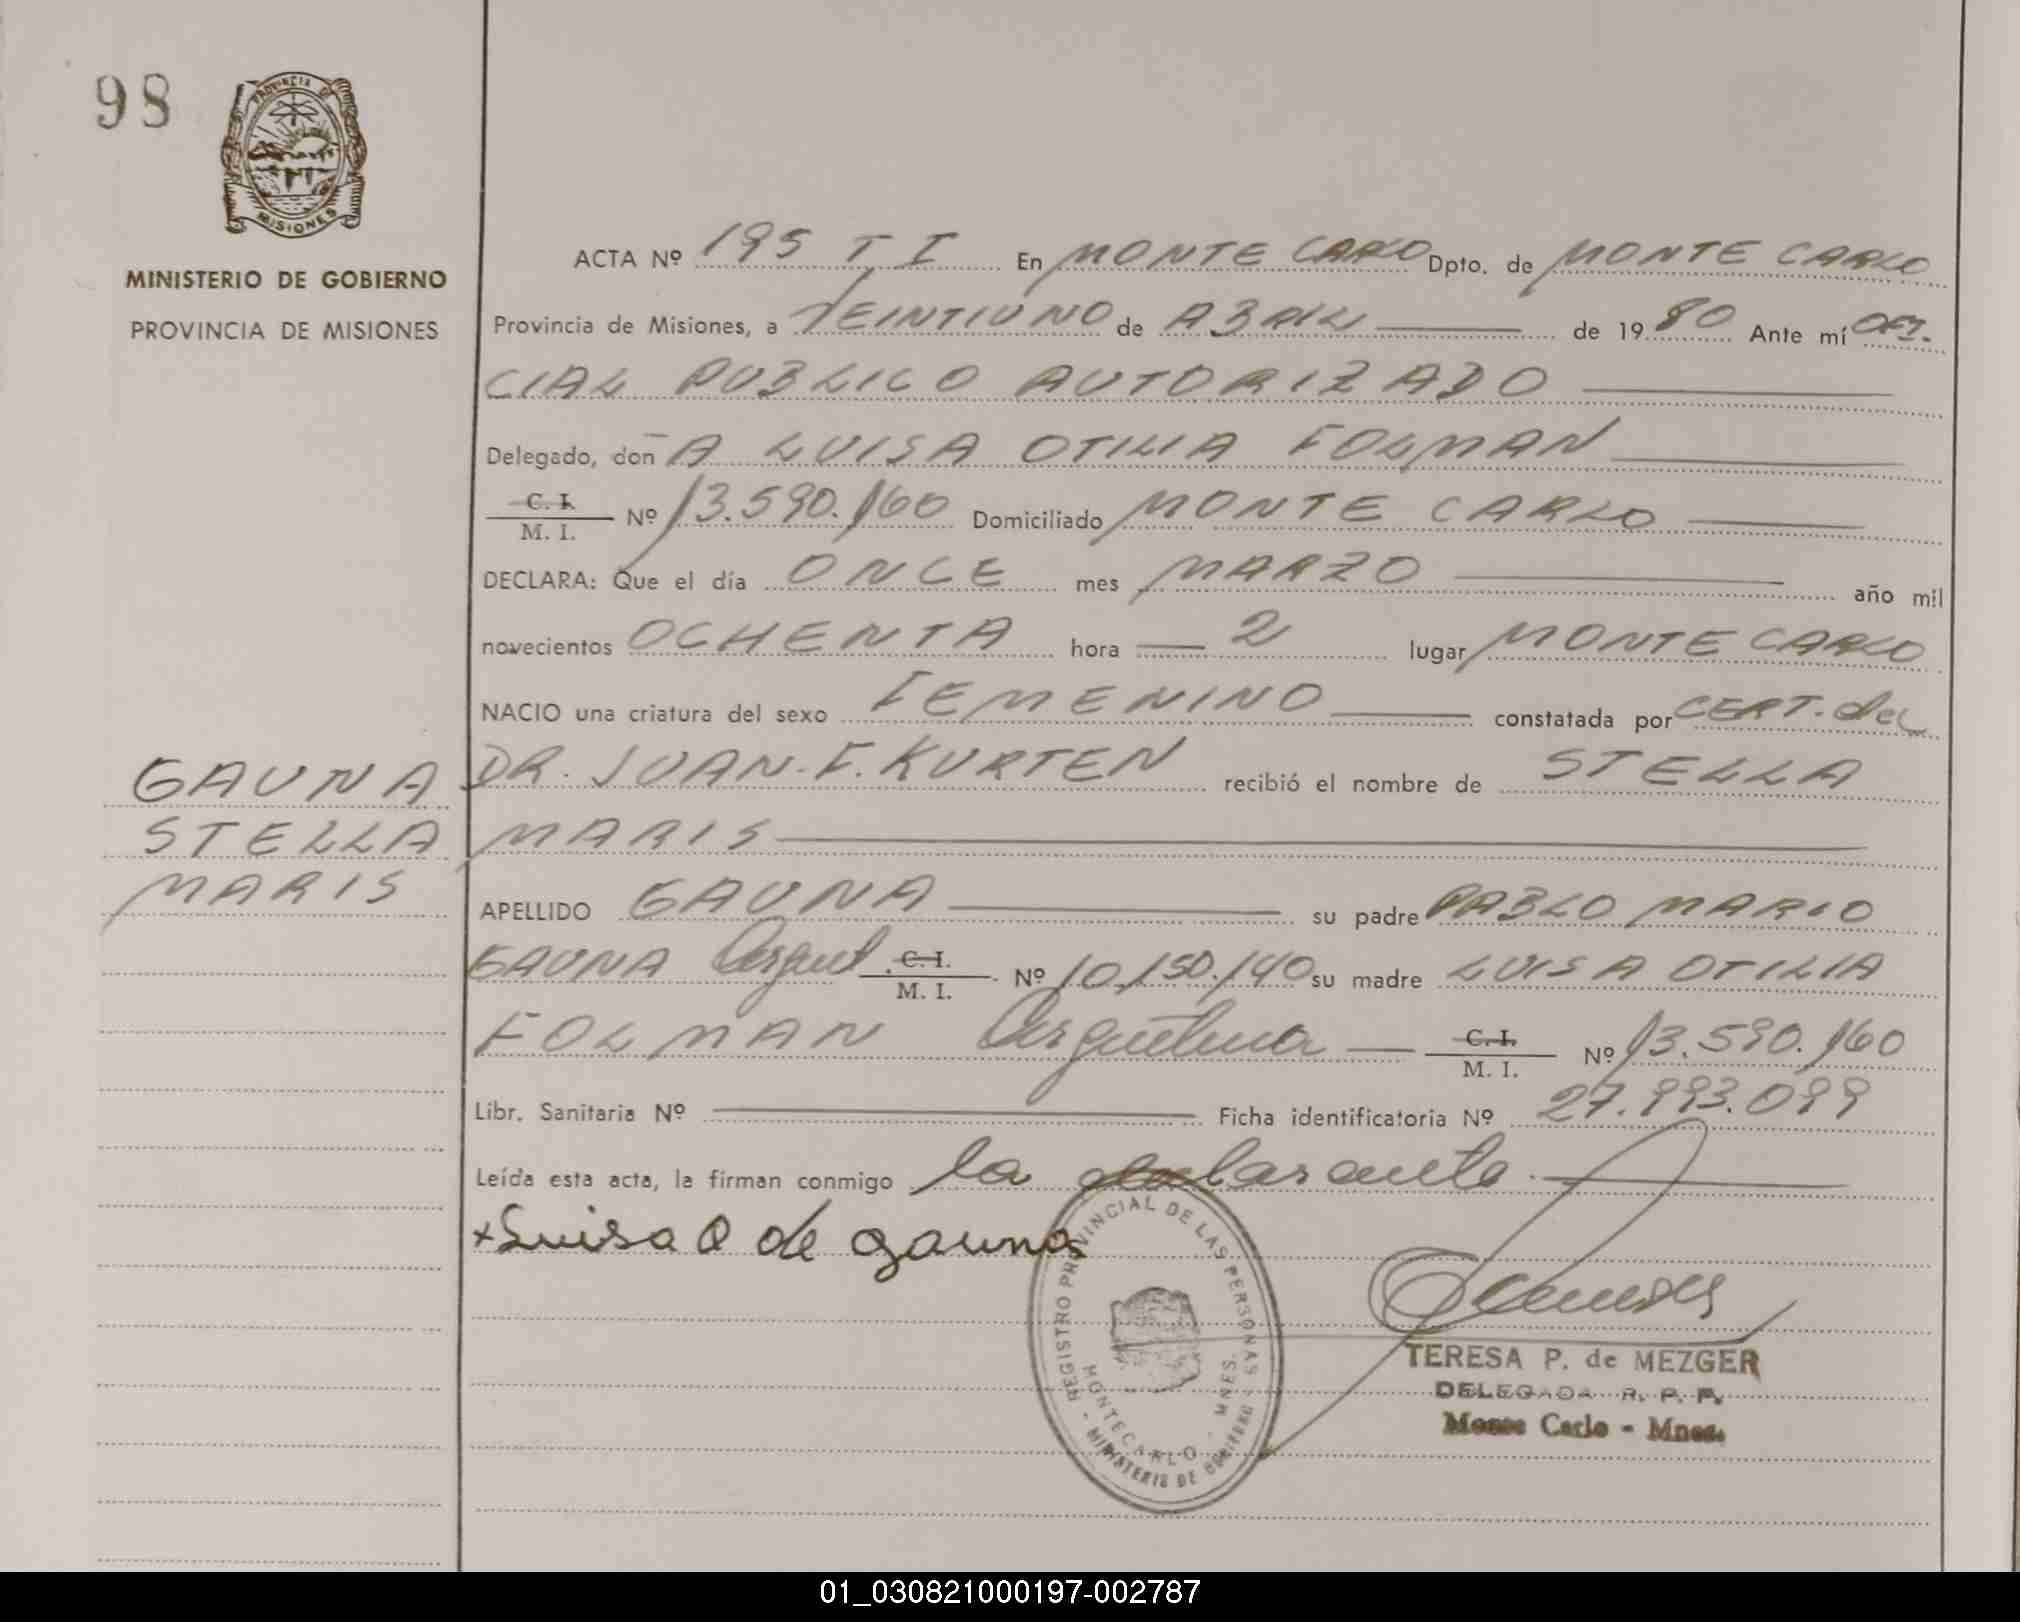 98
PROVINCIA DE
MISIONES
MINISTERIO DE GOBIERNO
PROVINCIA DE MISIONES
ACTA Nº 195 T I En MONTE CARLO Dpto. de MONTE CARLO
Provincia de Misiones, a VEINTIUNO de ABRIL de 1980 Ante mí OFI-
CIAL PUBLICO AUTORIZADO
Delegado, don A LUISA OTILIA FOLMAN
C. I.
M. I. Nº 13.590.160 Domiciliado MONTE CARLO
DECLARA: Que el día ONCE mes MARZO año mil
novecientos OCHENTA hora 2 lugar MONTE CARLO
NACIO una criatura del sexo FEMENINO constatada por CERT. del
DR. JUAN. F. KURTEN recibió el nombre de STELLA
MARIS
GAUNA
STELLA
MARIS
APELLIDO GAUNA su padre PABLO MARIO
GAUNA Argent. C. I. M. I. Nº 10.150.140 su madre LUISA OTILIA
FOLMAN Argentina C. I. M. I. Nº 13.590.160
Libr. Sanitaria Nº Ficha identificatoria Nº 27.993.099
Leída esta acta, la firman conmigo la declarante.
x Luisa O de gauna
REGISTRO PROVINCIAL DE LAS PERSONAS - MINISTERIO DE GOBIERNO
MONTECARLO - MNES.
TERESA P. de MEZGER
DELEGADA R. P. P.
Monte Carlo - Mnes.
01_030821000197-002787